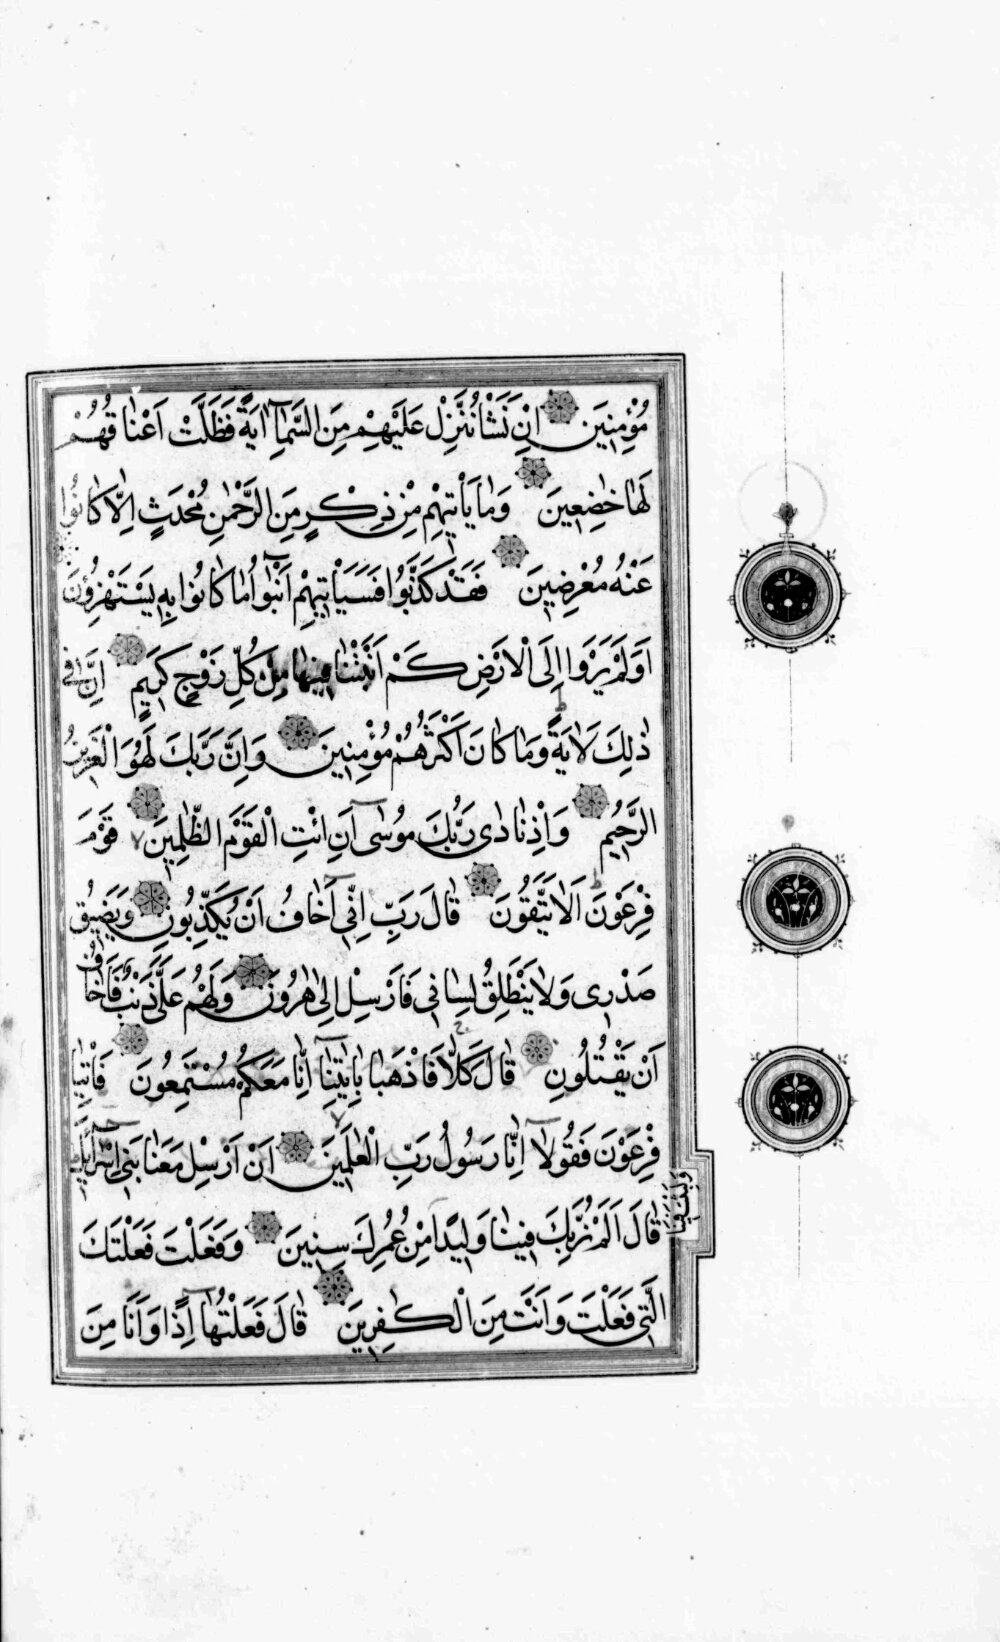 مُؤْمِنِينَ اِنْ نَشَأْ نُنَزِّلْ عَلَيْهِمْ مِنَ السَّمَآءِ اٰيَةً فَظَلَّتْ اَعْنَاقُهُمْ
لَهَا خَاضِعِينَ وَمَا يَأْتِيهِمْ مِنْ ذِكْرٍ مِنَ الرَّحْمٰنِ مُحْدَثٍ اِلَّا كَانُوا
عَنْهُ مُعْرِضِينَ فَقَدْ كَذَّبُوا فَسَيَأْتِيهِمْ اَنْبٰٓؤُا مَا كَانُوا بِهِ يَسْتَهْزِؤُنَ
اَوَلَمْ يَرَوْا اِلَى الْاَرْضِ كَمْ اَنْبَتْنَا فِيهَا مِنْ كُلِّ زَوْجٍ كَرِيمٍ اِنَّ فِى
ذٰلِكَ لَاٰيَةً وَمَا كَانَ اَكْثَرُهُمْ مُؤْمِنِينَ وَاِنَّ رَبَّكَ لَهُوَ الْعَزِيزُ
الرَّحِيمُ وَاِذْ نَادٰى رَبُّكَ مُوسٰٓى اَنِ ائْتِ الْقَوْمَ الظّٰلِمِينَ قَوْمَ
فِرْعَوْنَ اَلَا يَتَّقُونَ قَالَ رَبِّ اِنِّٓى اَخَافُ اَنْ يُكَذِّبُونِ وَيَضِيقُ
صَدْرِى وَلَا يَنْطَلِقُ لِسَانِى فَاَرْسِلْ اِلٰى هٰرُونَ وَلَهُمْ عَلَىَّ ذَنْبٌ فَاَخَافُ
اَنْ يَقْتُلُونِ قَالَ كَلَّا فَاذْهَبَا بِاٰيَاتِنَٓا اِنَّا مَعَكُمْ مُسْتَمِعُونَ فَأْتِيَا
فِرْعَوْنَ فَقُولَٓا اِنَّا رَسُولُ رَبِّ الْعٰلَمِينَ اَنْ اَرْسِلْ مَعَنَا بَنِٓى اِسْرَآئِيلَ
قَالَ اَلَمْ نُرَبِّكَ فِينَا وَلِيدًا وَلَبِثْتَ فِينَا مِنْ عُمُرِكَ سِنِينَ وَفَعَلْتَ فَعْلَتَكَ
الَّتِى فَعَلْتَ وَاَنْتَ مِنَ الْكٰفِرِينَ قَالَ فَعَلْتُهَٓا اِذًا وَاَنَا مِنَ